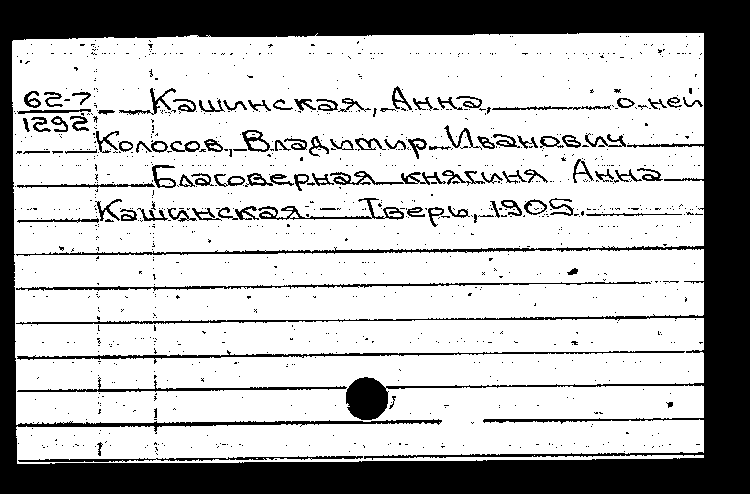 62-7 Кашинская, Анна, о ней
1292
Колосов, Владимир Иванович
Благоверная княгиня Анна
Кашинская. - Тверь, 1905.